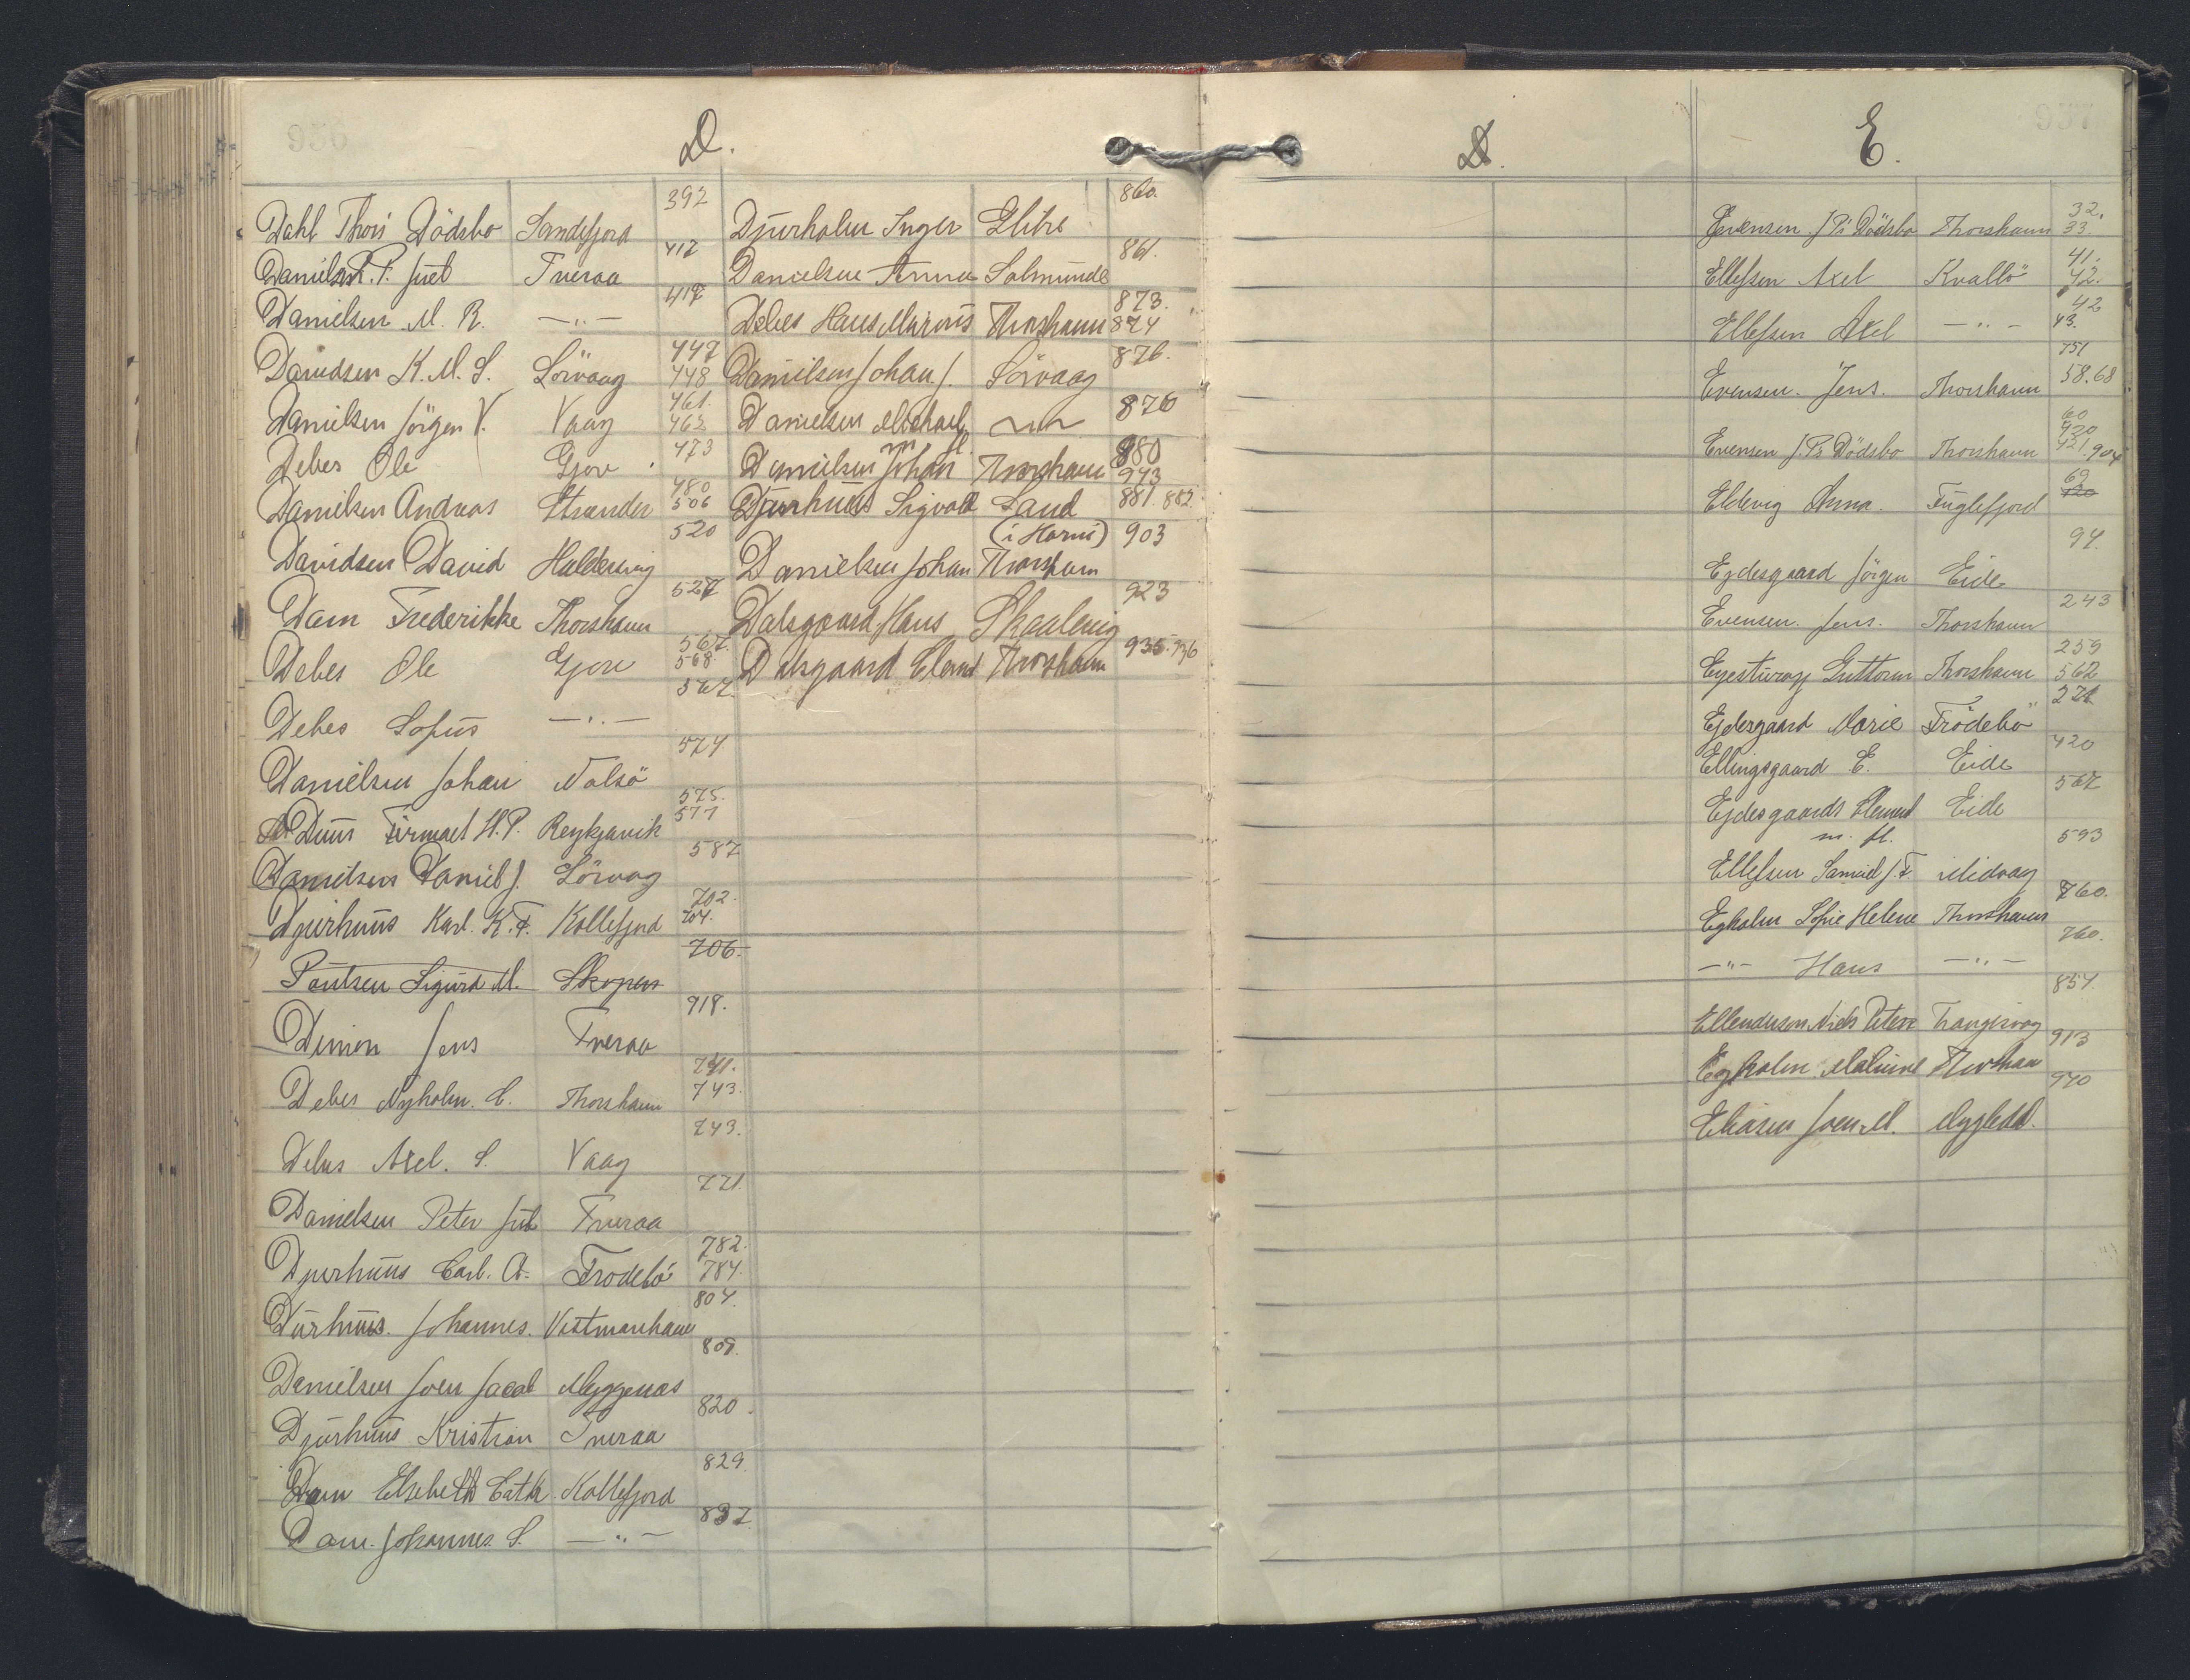 956
D.
Dahl Thors Dödsbo Sandefjord 392
Danielsen P. Juel Tveraa 417
Danielsen M. R. —"— 417
Davidsen K. M. S. Sörvaag 447 448
Danielsen Jörgen V. Vaag 461. 463
Debes Ole Gjov 473
Danielsen Andreas Strænder 480 506
Davidsen David Haldersvig 520
Dam Frederikke Thorshavn 527
Debes Ole Gjov 567. 568
Debes Sofus —"— 567.
Danielsen Johan Nolsö 574
Duus Firmaet H. P. Reykjavik 575. 577
Danielsen Daniel J. Sörvaag 587
Djurhuus Karl. K. F. Kollefjord 702. 704.
Poulsen Sigurd M. Skopen 706.
Dimon Jens Tveraa 718.
Debes Nyholm. C. Thorshavn 741. 743.
Debes Axel. S. Vaag 743.
Danielsen Peter Juel Tveraa 771.
Djurhuus Carl. A. Frodebö 782. 784.
Durhuus. Johannes. Vestmanhavn 804.
Danielsen Joen Jacob Myggenæs 809.
Djurhuus Kristian Tveraa 820.
Dam Elsebeth Cath. Kollefjord 829.
Dam. Johannes. S. —"— 837.
Djurholm Inger Glibre 860.
Danielsen Anna Salmunde 861.
Debes Hans Marius Thorshavn 873. 874
Danielsen Johan J. Sörvaag 876.
Danielsen Michael m. fl. 876
Danielsen Johan Thorshavn 880 943
Djurhuus Sigvald Sand 881. 882.
(i Horni) 903
Danielsen Johan Thorshavn
Dalsgaard Hans Skaalevig 923
Dalsgaard Clement Thorshavn 935. 936
D.
E.
957
Evensen J. P's Dödsbo Thorshavn 32. 33.
Ellefsen Axel Kvalbö 41. 42.
Ellefsen Axel —"— 42 43.
Evensen. Jens. Thorshavn 751 58. 68
Evensen J. P's Dödsbo Thorshavn 60 420 421. 904
Eldevig Anna. Fuglefjord 69 420
Ejdesgaard Jörgen Eide 94.
Evensen. Jens. Thorshavn 243
Eyestuvoy Guttorm Thorshavn 259 562
Ejdesgaard Marie Frödebö 271
Ellingsgaard E. Eide 420
Ejdesgaards Clement m. fl. Eide 567
Ellefsen Samuel J. F. Midvaag 593
Egholm Sofie Helene Thorshavn 760.
—"— Hans —"— 760.
Ellendersen Niels Peter Trangisvog 854.
Egholm Malvine Thorshavn 913
Eliasen Joen. M. Mygledal. 940